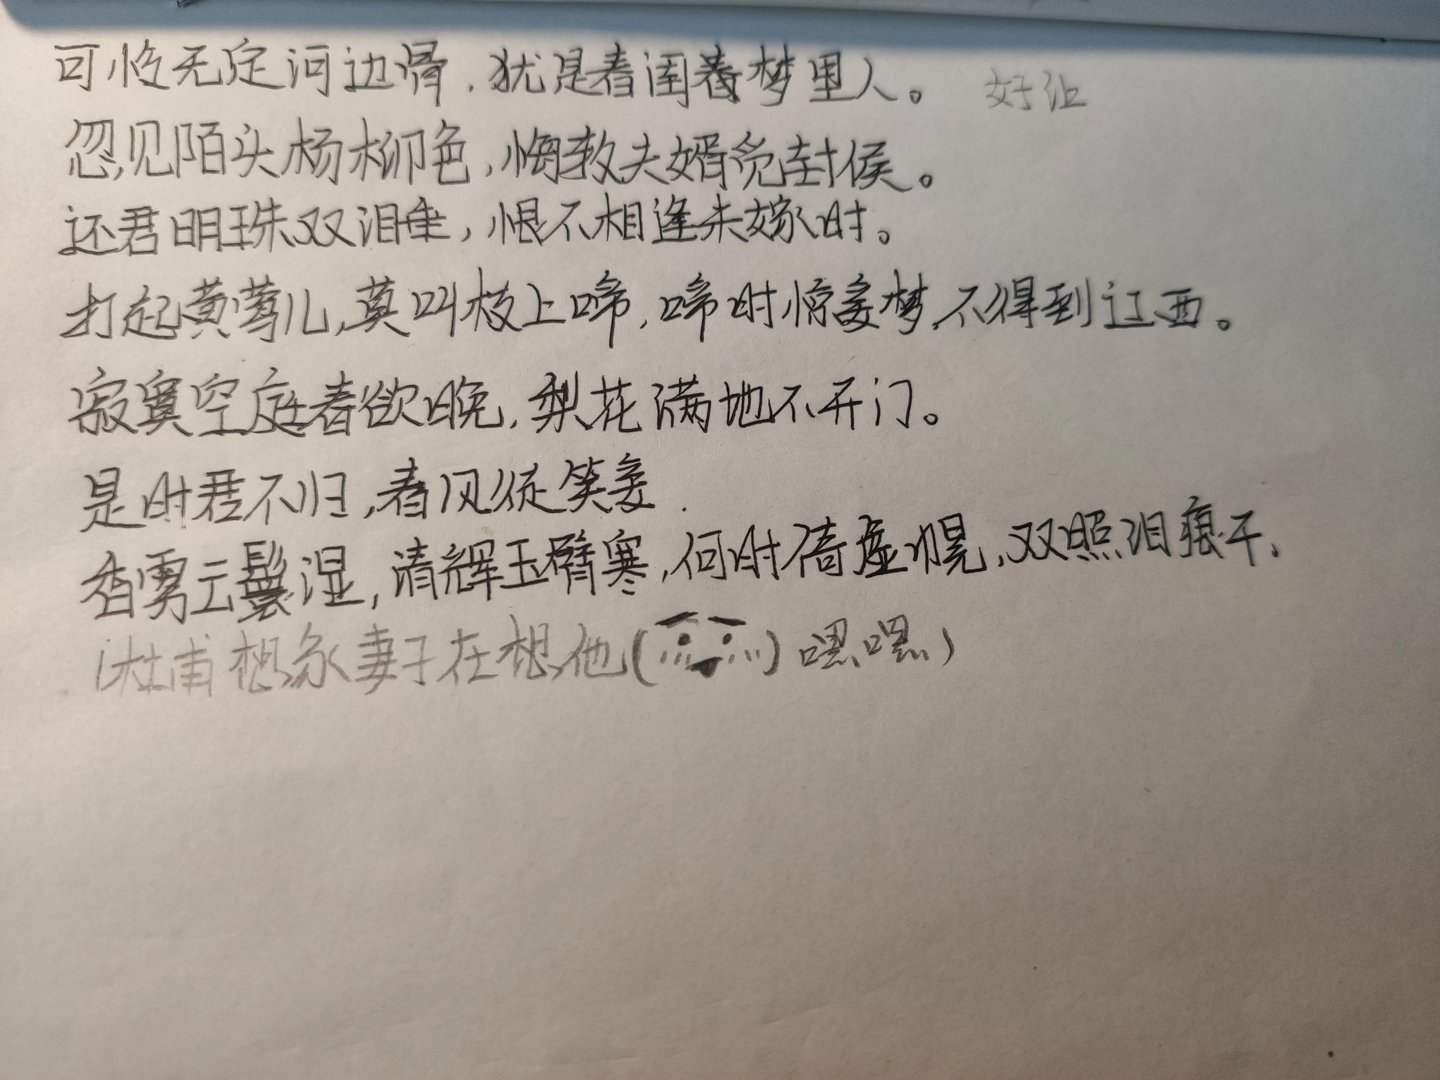 可怜无定河边骨，犹是春闺春梦里人。 好句
忽见陌头杨柳色，悔教夫婿觅封侯。
还君明珠双泪垂，恨不相逢未嫁时。
打起黄莺儿，莫叫枝上啼，啼时惊妾梦，不得到辽西。
寂寞空庭春欲晚，梨花满地不开门。
是时君不归，春风徒笑妾．
香雾云鬟湿，清辉玉臂寒，何时倚虚幌，双照泪痕干、
（杜甫想象妻子在想他( )嘿嘿）